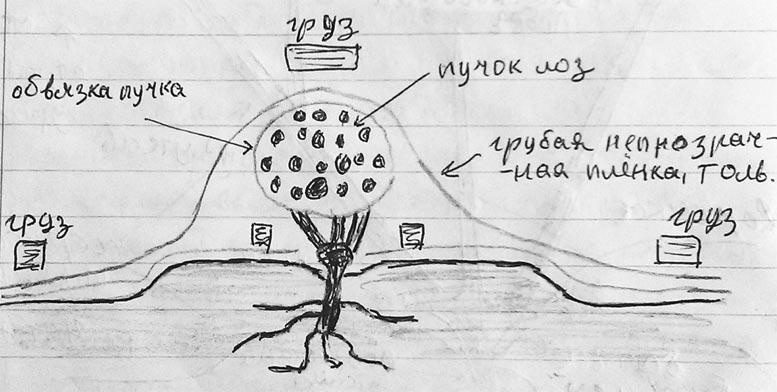 груз
пучок лоз
обвязка пучка
грубая непрозрач-
-ная плёнка, толь.
груз
груз